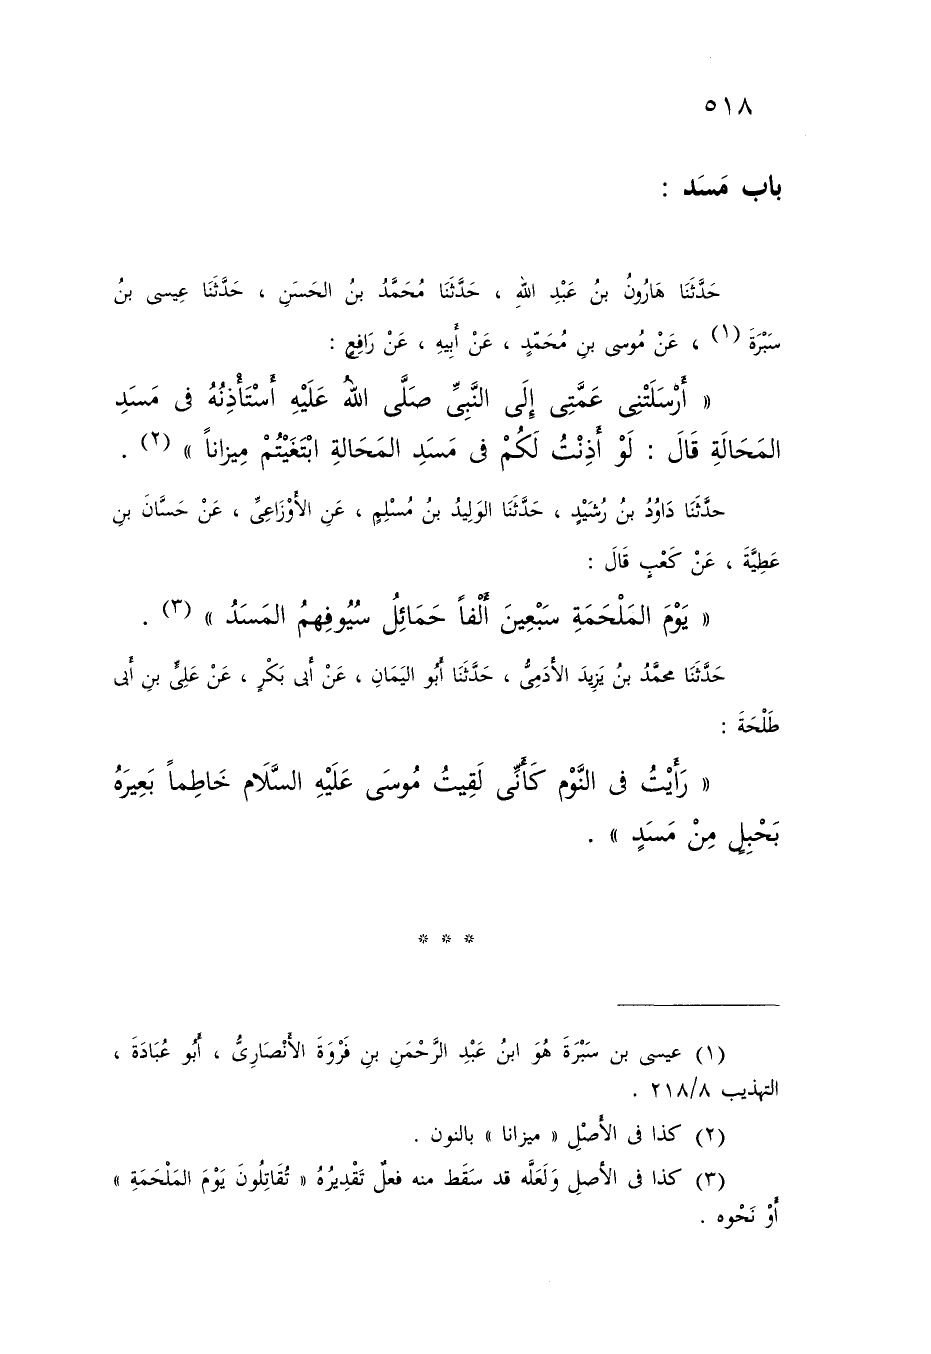 ٥١٨
باب مَسَد :
حَدَّثَنَا هَارُونُ بنُ عَبْدِ اللهِ ، حَدَّثَنَا مُحَمَّدُ بنُ الحَسَنِ ، حَدَّثَنَا عِيسى بنُ
سَبْرَةَ (١) ، عَنْ مُوسى بنِ مُحَمّدٍ ، عَنْ أَبِيهِ ، عَنْ رَافِعٍ :
« أَرْسَلَتْنِى عَمَّتِى إِلَى النَّبِىِّ صَلَّى اللهُ عَلَيْهِ أَسْتَأْذِنُهُ فى مَسَدِ
المَحَالَةِ قَالَ : لَوْ أَذِنْتُ لَكُمْ فى مَسَدِ المَحَالةِ ابْتَغَيْتُمْ مِيزاناً » (٢) .
حدَّثَنَا دَاوُدُ بنُ رُشَيْدٍ ، حَدَّثَنَا الوَلِيدُ بنُ مُسْلِمٍ ، عَنِ الأَوْزَاعِىِّ ، عَنْ حَسَّانَ بنِ
عَطِيَّةَ ، عَنْ كَعْبٍ قَالَ :
« يَوْمَ المَلْحَمَةِ سَبْعِينَ أَلْفاً حَمَائِلُ سُيُوفِهمُ المَسَدُ » (٣) .
حَدَّثَنَا محمَّدُ بنُ يَزِيدَ الأَدَمِىُّ ، حَدَّثَنَا أَبُو اليَمَانِ ، عَنْ أَبى بَكْرٍ ، عَنْ عَلِىِّ بنِ أَبى
طَلْحَةَ :
« رَأَيْتُ فى النَّوْمِ كَأَنِّى لَقِيتُ مُوسَى عَلَيْهِ السَّلَام خَاطِماً بَعِيرَهُ
بَحْبِلٍ مِنْ مَسَدٍ » .
* * *
(١) عيسى بن سَبْرَةَ هُوَ ابنُ عَبْدِ الرَّحْمَنِ بنِ فَرْوَةَ الأَنْصَارِىُّ ، أَبُو عُبَادَةَ ،
التهذيب ٢١٨/٨ .
(٢) كذا فى الأَصْلِ « ميزانا » بالنون .
(٣) كذا فى الأصلِ وَلَعَلَّه قد سَقَط منه فعلٌ تَقْدِيرُهُ « تُقَاتِلُونَ يَوْمَ المَلْحَمَةِ »
أَوْ نَحْوه .